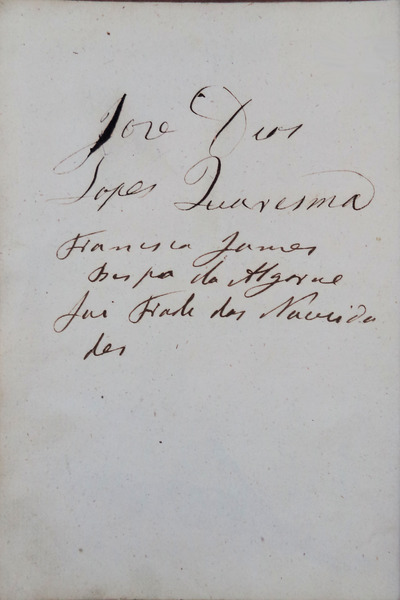 Jose Dios
Lopes Quaresma
Francisco James
Bispo do Algarve
Foi Frade das Necesida
des